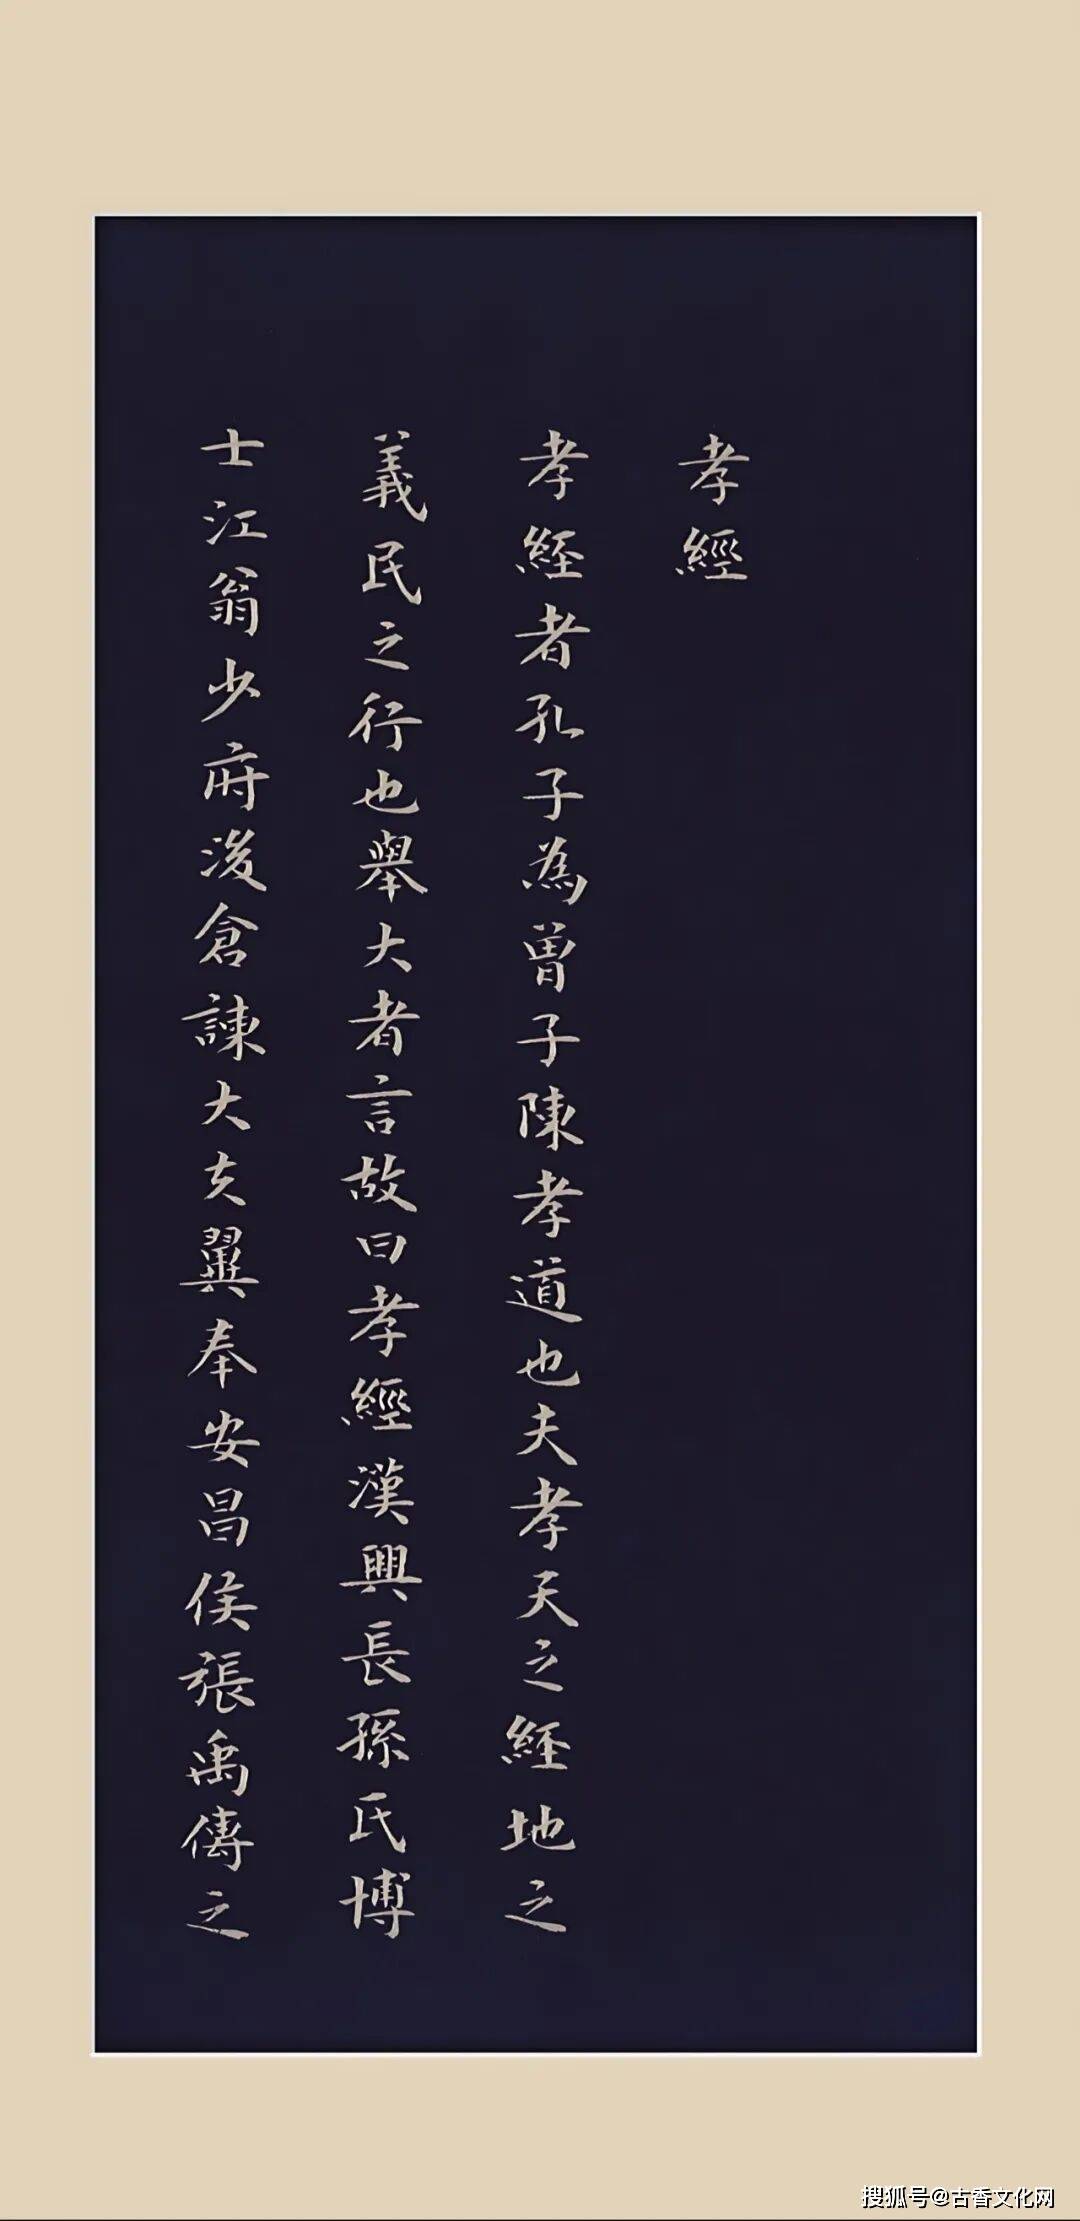 孝經
孝経者孔子為曾子陳孝道也夫孝天之経地之
義民之行也舉大者言故曰孝經漢興長孫氏博
士江翁少府後倉諫大夫翼奉安昌侯張禹傳之
搜狐号@古香文化网